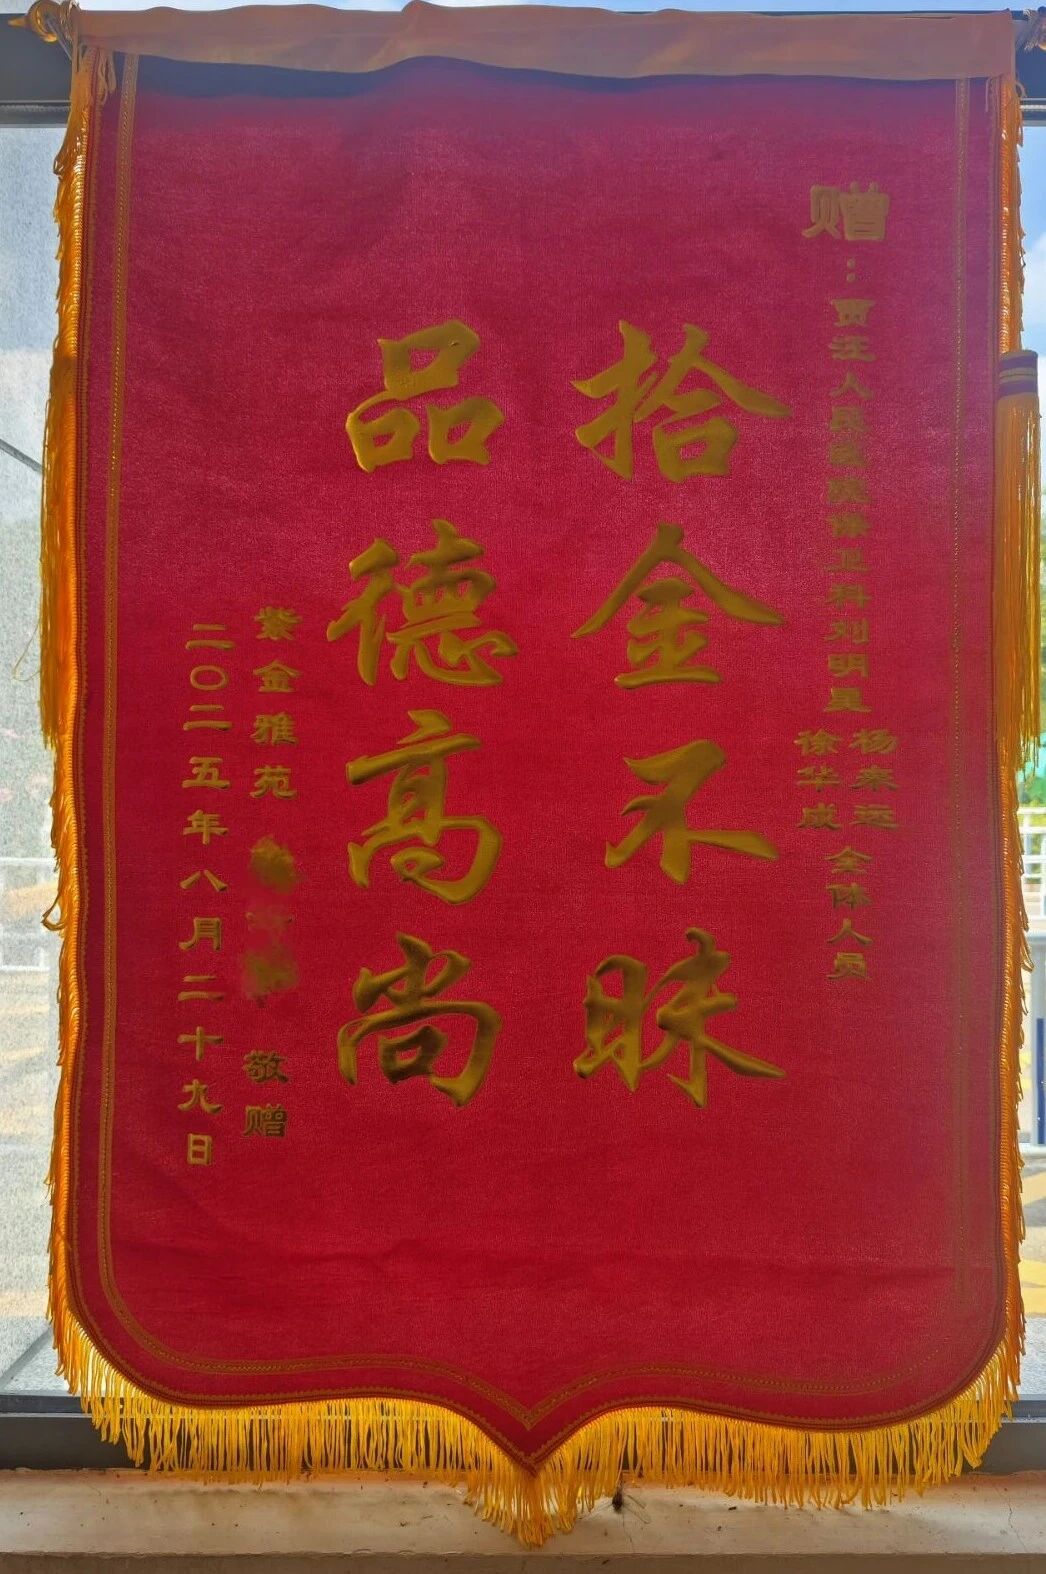 赠：贾汪人民医院保卫科刘明星
杨来远
徐华成
全体人员
拾金不昧
品德高尚
紫金雅苑
敬赠
二〇二五年八月二十九日